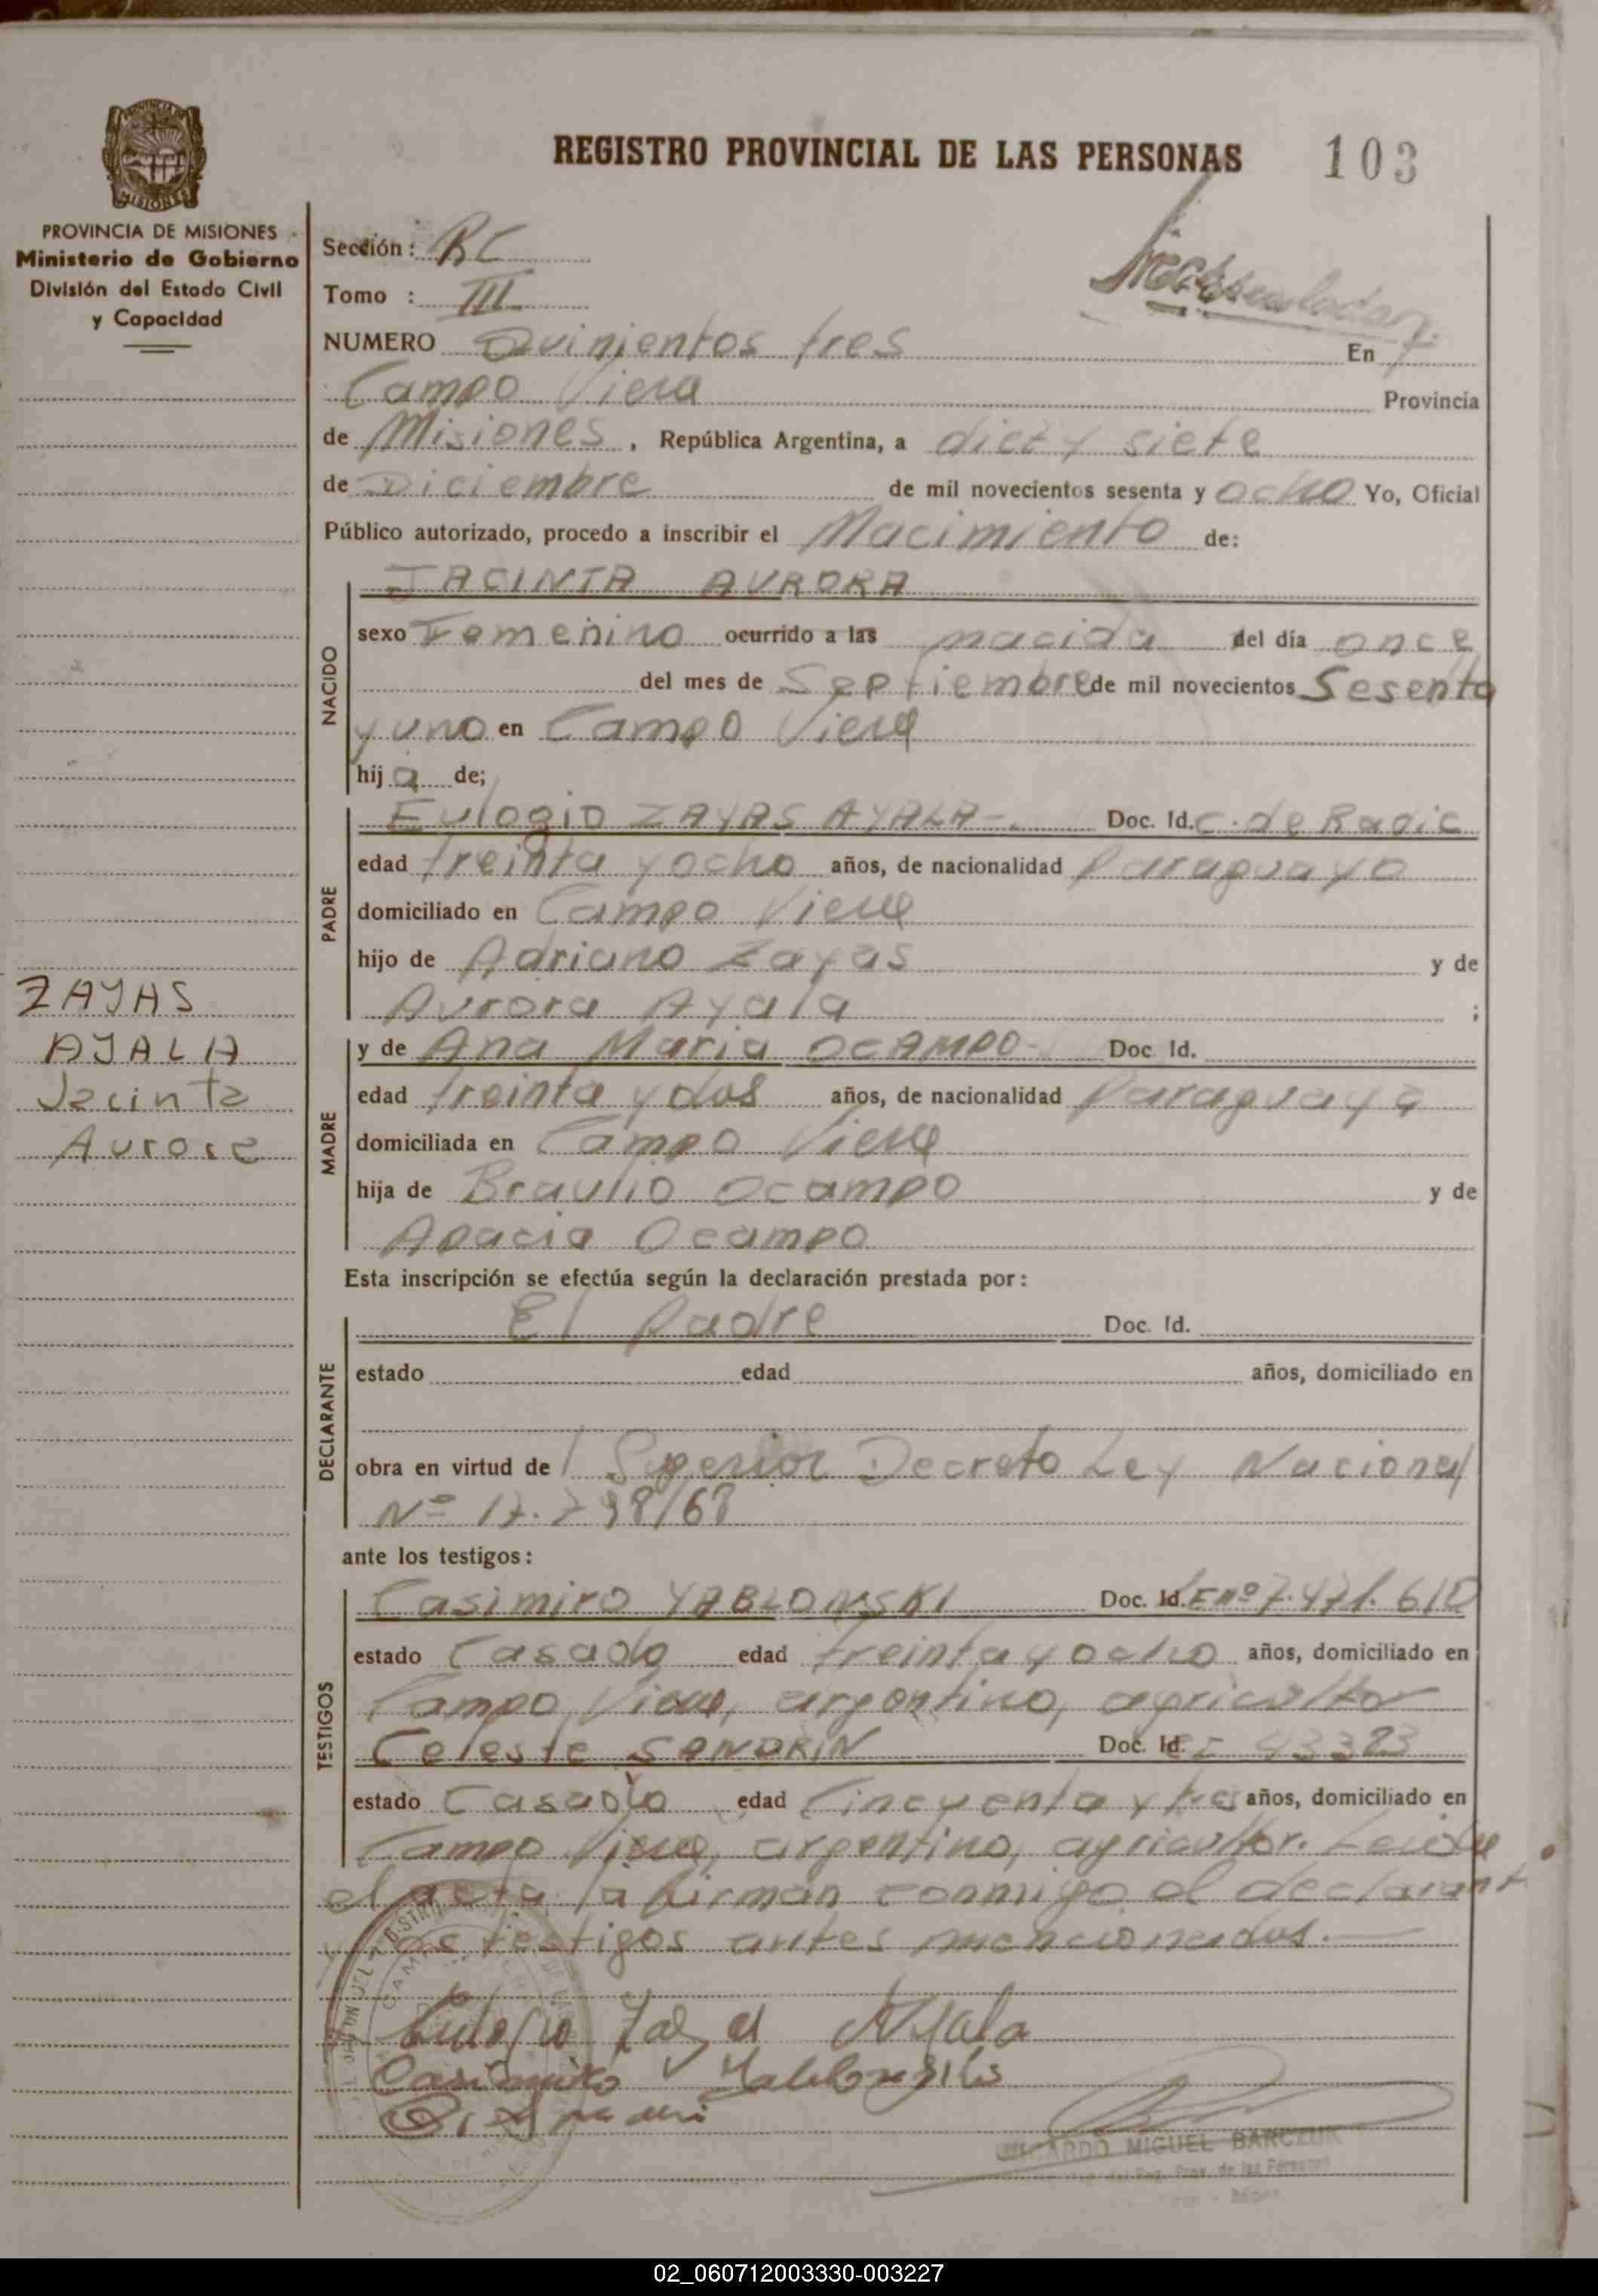 REGISTRO PROVINCIAL DE LAS PERSONAS 103
PROVINCIA DE
MISIONES
PROVINCIA DE MISIONES
Ministerio de Gobierno
División del Estado Civil
y Capacidad
Sección: RC
Tomo : III
NUMERO Quinientos tres En
Campo Viera Provincia
de Misiones, República Argentina, a diez y siete
de Diciembre de mil novecientos sesenta y ocho Yo, Oficial
Público autorizado, procedo a inscribir el Nacimiento de:
NACIDO
JACINTA AURORA
sexo Femenino ocurrido a las nacida del día once
del mes de Septiembre de mil novecientos Sesenta
y uno en Campo Viera
hija de;
PADRE
Eulogio ZAYAS AYALA-. Doc. Id. C. de Radic
edad treinta y ocho años, de nacionalidad Paraguayo
domiciliado en Campo Viera
hijo de Adriano Zayas y de
Aurora Ayala ;
ZAYAS
AYALA
Jacinta
Aurora
MADRE
y de Ana Maria OCAMPO- Doc. Id.
edad treinta y dos años, de nacionalidad Paraguaya
domiciliada en Campo Viera
hija de Braulio Ocampo y de
Apacia Ocampo
Esta inscripción se efectúa según la declaración prestada por:
DECLARANTE
El Padre Doc. Id.
estado edad años, domiciliado en
obra en virtud del Superior Decreto Ley Nacional
Nº 17. /68
ante los testigos:
TESTIGOS
Casimiro YABLONSKI Doc. Id. E nº 7.471.610
estado Casado edad treinta y ocho años, domiciliado en
Campo Viera, argentino, agricultor
Celeste Doc. Id. 43383
estado Casado edad Cincuenta y años, domiciliado en
Campo Viera, argentino, agricultor. Leida
el acta la firman conmigo el declarant
y los testigos antes mencionados.-
Eulogio Ayala
Casimiro
MIGUEL BARCZUK
Reg. Prov. de las Personas
02_060712003330-003227